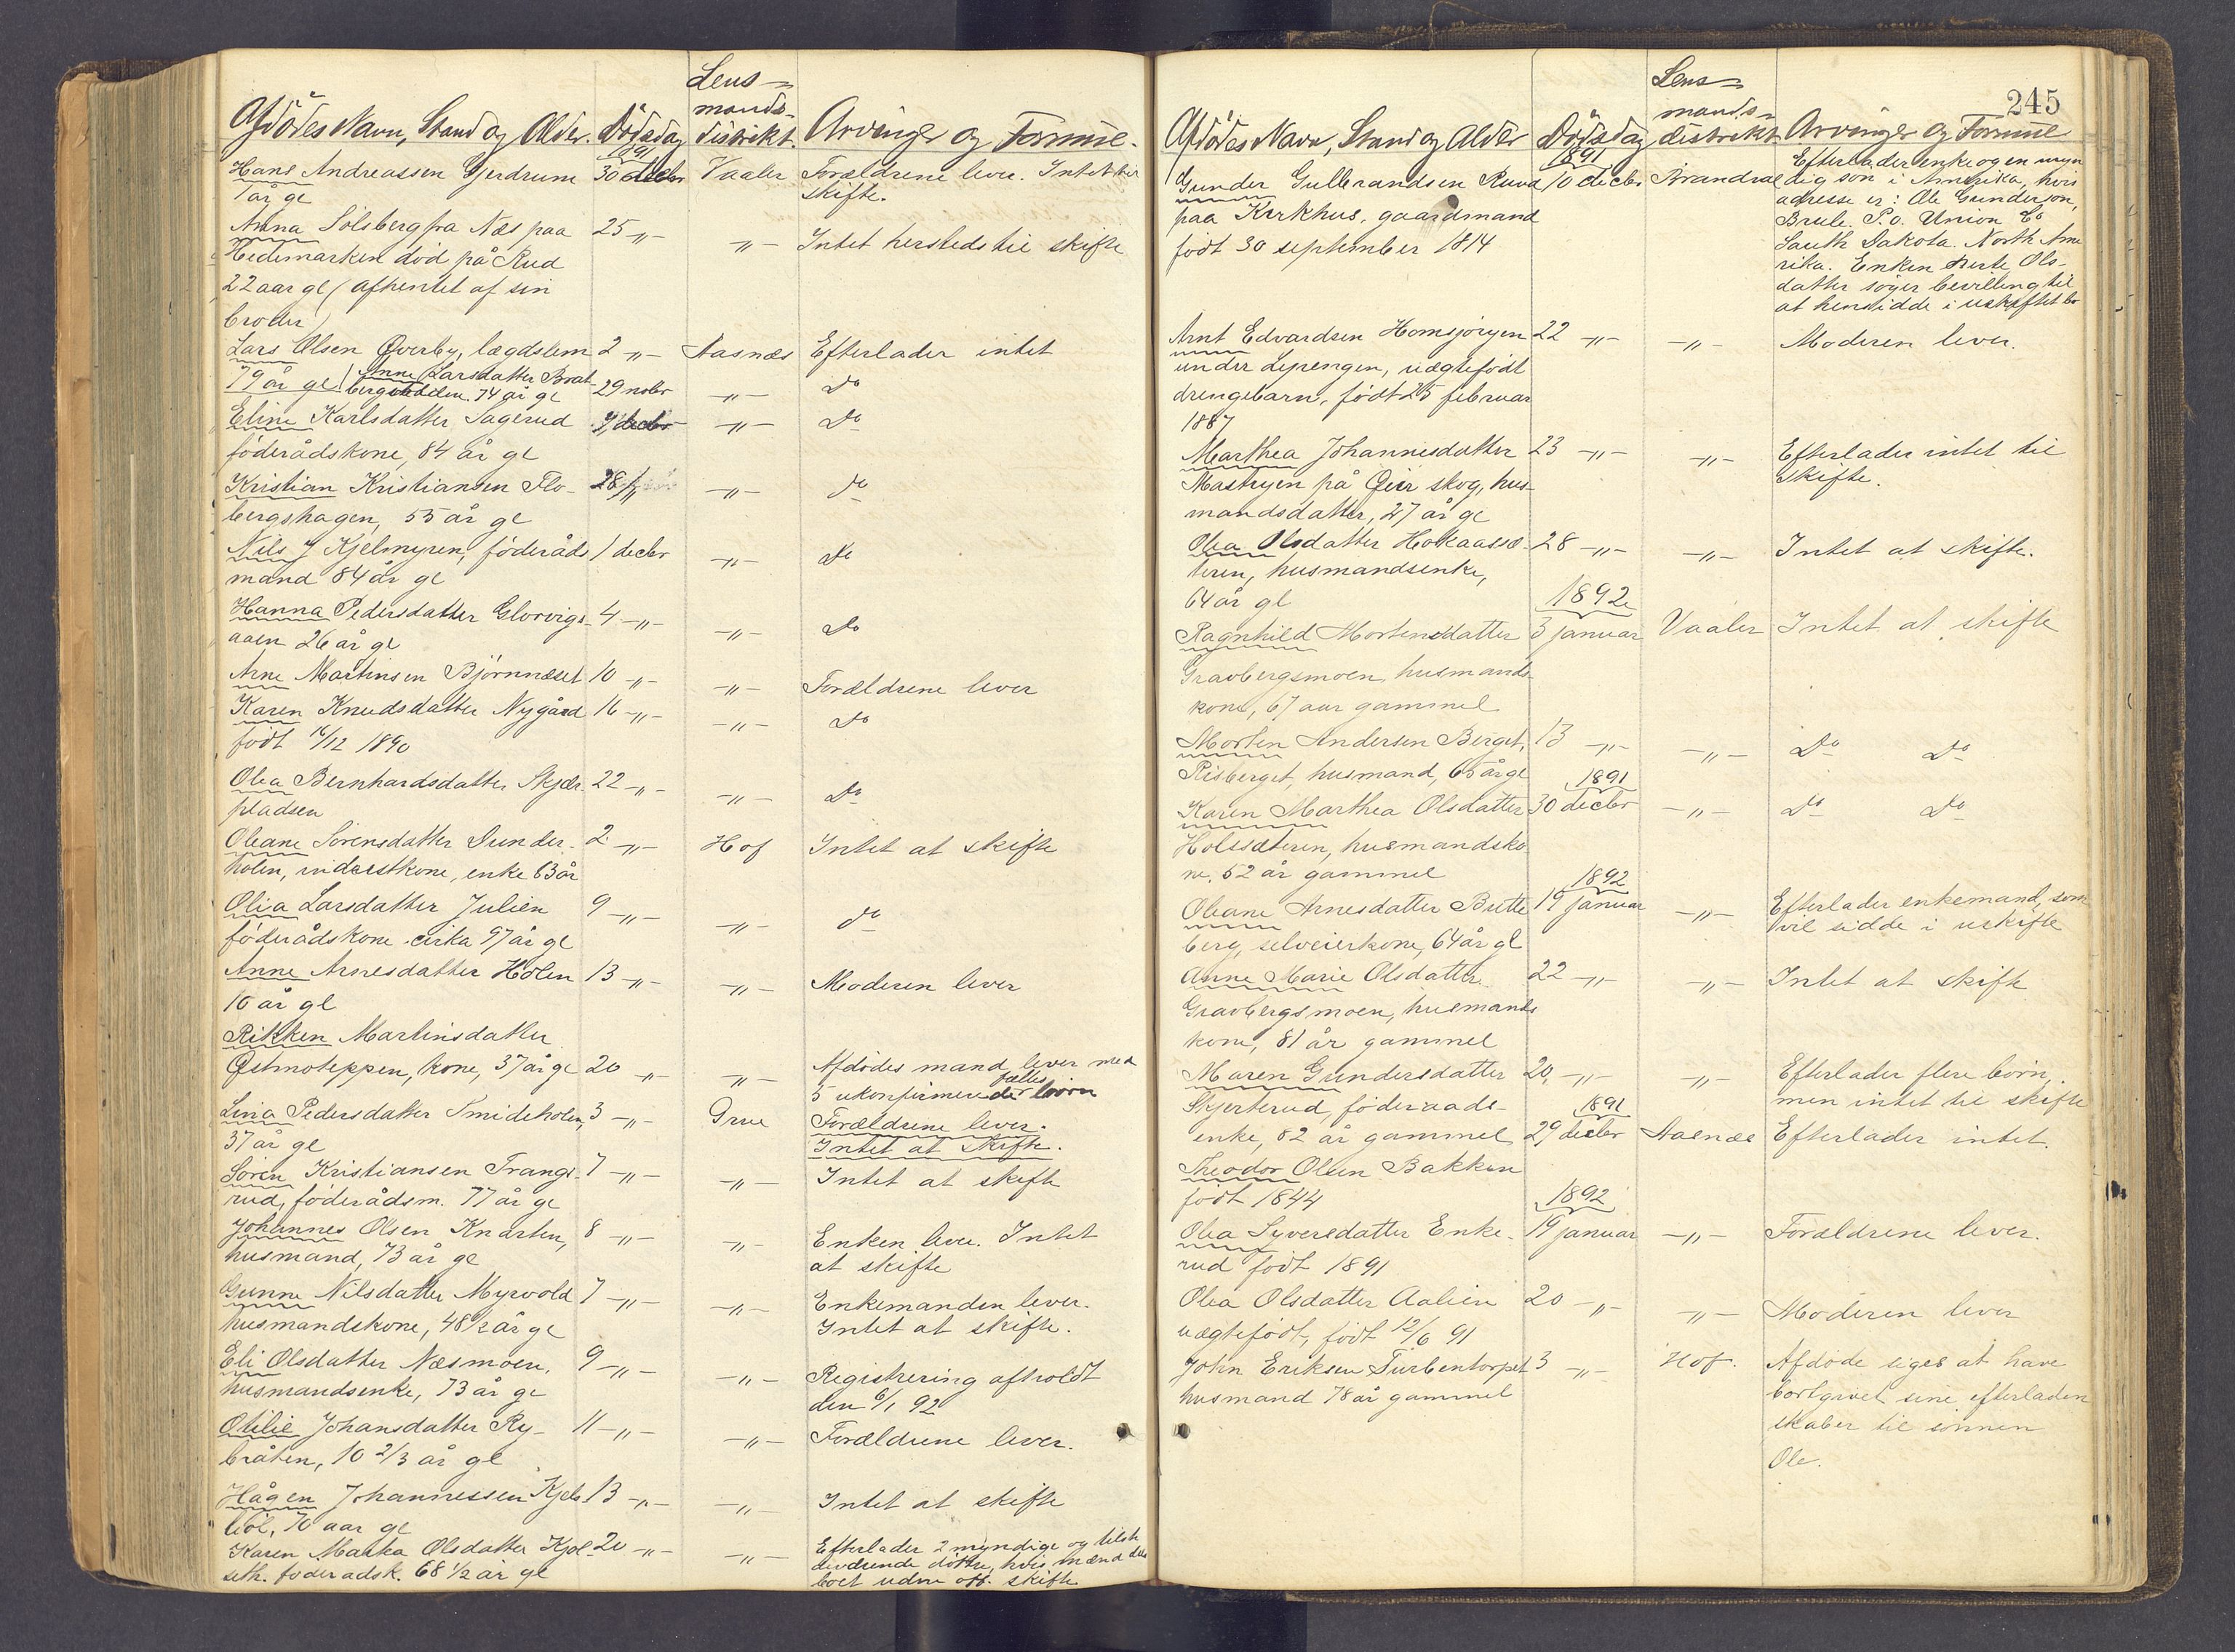 Lens=
mands-
Afdödes Navn, Stand og Alder. Dödsdag distrikt. Arvinger og Formue.
1891
Hans Andreassen Gjerdrum 30 decbr Vaaler Forældrene lever. Intet
1 år gl skifte.
Anna Solsberg fra Næs paa 25 -„- -„- Intet hersteds til skifte
Hedemarken död på Rud
22 aar gl (afhentet af sin
broder)
Lars Olsen Overby, lægdslem 2 -„- Aasnæs Efterlader intet
79 år gl. Anne Larsdatter Brat-
berg 74 år gl 29 nobr -„- Do
Eline Karlsdatter Sagerud decbr -„- Do
föderådskone, 84 år gl
Kristian Kristiansen Flo- 28 -„- Do
bergshagen, 55 år gl
Nils J Kjelmyren, föderåds 1 decbr -„- Do
mand 84 år gl
Hanna Pedersdatter Glorvigs- 4 -„- -„- Do
aaen 26 år gl
Arne Martinsen Björnnæset 10 -„- -„- Forældrene lever
Karen Knudsdatter Nygård 16 -„- -„- Do
födt 16/12 1890
Olea Bernhardsdatter Skjær- 22 -„- -„- Do
pladsen
Oleane Sörensdatter Dunder- 2 -„- Hof Intet at skifte
holen, inderstkone, enke 63 år
Olia Larsdatter Julien 9 -„- -„- do
föderådskone cirka 97 år gl
Anne Arnesdatter Holen 13 -„- -„- Moderen lever
10 år gl
Rikken Martinsdatter
Östmoteppen, kone, 37 år gl 20 -„- -„- Afdödes mand lever med
5 ukonfirmerede fælles börn
Lina Pedersdatter Smideholen, 3 -„- Grue Forældrene lever.
37 år gl Intet at skifte.
Sören Kristiansen Trangs- 7 -„- -„- Intet at skifte
rud, föderådsm. 77 år gl
Johannes Olsen Knarten, 8 -„- -„- Enken lever. Intet
husmand, 73 år gl at skifte
Gunne Nilsdatter Myrvold 7 -„- -„- Enkemanden lever.
husmandskone, 48 1/2 år gl Intet at skifte.
Eli Olsdatter Næsmoen, 9 -„- -„- Registrering afholdt
husmandsenke, 73 år gl den 6/1 92
Otilie Johansdatter Ry- 11 -„- -„- Forældrene lever.
bråten, 10 2/3 år gl
Hågen Johannessen Kjels- 13 -„- -„- Intet at skifte
böl, 70 aar gl
Karen Marka Olsdatter Kjöl- 20 -„- -„- Efterlader 2 myndige og tilste-
seth. föderådsk. 68 1/2 år gl deværende döttre, hvis mænd
boet uden off. skifte
245
Lens=
mands=
Afdödes Navn, Stand og Alder Dödsdag distrikt Arvinger og Formue
1891
Gunder Gulbrandsen Ruud 10 decbr Brandval Efterlader enke og en myn
paa Kirkhus, gaardmand dig sön i Amerika, hvis
födt 30 september 1814 adresse er: Ole Gunderson,
Brule P.o. Union Co
South Dakota. North Ame
rika. Enken Berte Ols-
datter söger bevilling til
at hensidde i uskiftet bo
Arnt Edvardsen Homsjöryen 22 -„- -„- Moderen lever.
under Lyrengen, uægtefödt
drengebarn, födt 25 februar
1887
Marthea Johannesdatter 23 -„- -„- Efterlader intet til
Mastryen på Öier skog, hus- Skifte.
mandsdatter, 27 år gl
Olea Olsdatter Hokaassæ- 28 -„- -„- Intet at skifte.
teren, husmandsenke,
64 år gl 1892
Ragnhild Mortensdatter 3 januar Vaaler Intet at skifte
Gravbergsmoen, husmands
kone, 67 aar gammel
Morten Andersen Berget, 13 -„- -„- Do Do
Risberget, husmand, 65 år gl 1891
Karen Marthea Olsdatter 30 decbr -„- Do Do
Holssæteren, husmandsko
ne. 52 år gammel 1892
Oleane Arnesdatter Butte 19 januar -„- Efterlader enkemand, som
berg, selveierkone, 64 år gl vil sidde i uskifte
Anne Marie Olsdatter 22 -„- -„- Intet at skifte
Gravbergsmoen, husmands
kone, 81 år gammel
Maren Gundersdatter 20, -„- -„- Efterlader flere börn,
Skjerterud, föderaads- 1891 men intet til skifte
enke, 82 år gammel 29 decbr Aasnæs Efterlader intet.
Theodor Olsen Bakken
födt 1844 1892
Olea Syversdatter Enke- 19 januar -„- Forældrene lever.
rud födt 1891
Olea Olsdatter Aalien 20 -„- -„- Moderen lever
uægtefödt, födt 12/6 91
John Eriksen Furbentorpet 3 -„- Hof. Afdöde siges at have
husmand 78 år gammel bortgivet sine efterladen
skaber til sönnen
Ole.